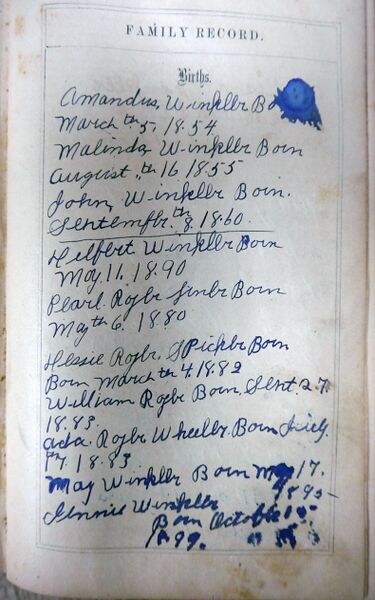 FAMILY RECORD.
Births.
Amandus Winkler Bo
March th 5, 18.54
Malinda Winkler Born
August .th 16 18.55
John, Winkler Born.
Septempbr. th 8. 18.60.
Hilbert Winkler Born
May 11. 18.90
Pearl. Rojbr Born
May th 6. 18.80
Rojbr. SPickbr Born
Born March th 4. 18.82
William Rojbr Born, Sept. 27.
18.83.
Ada. Rojbr Wheeler. Born July.
18.83
May Winkler Born May 17.
1895
Jennie Winkler
Born October 15
1899.